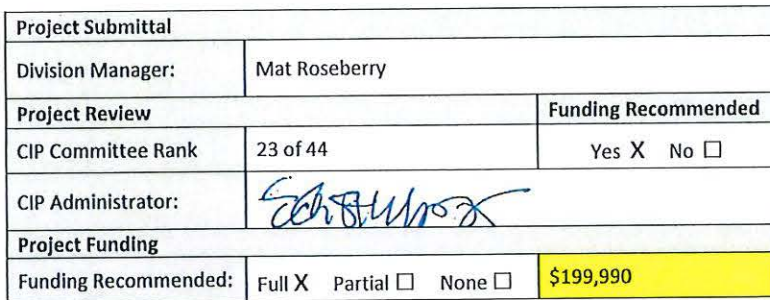 Project Submittal
Division Manager: Mat Roseberry
Project Review Funding Recommended
CIP Committee Rank 23 of 44 Yes X No ☐
CIP Administrator:
Project Funding
Funding Recommended: Full X Partial ☐ None ☐ $199,990